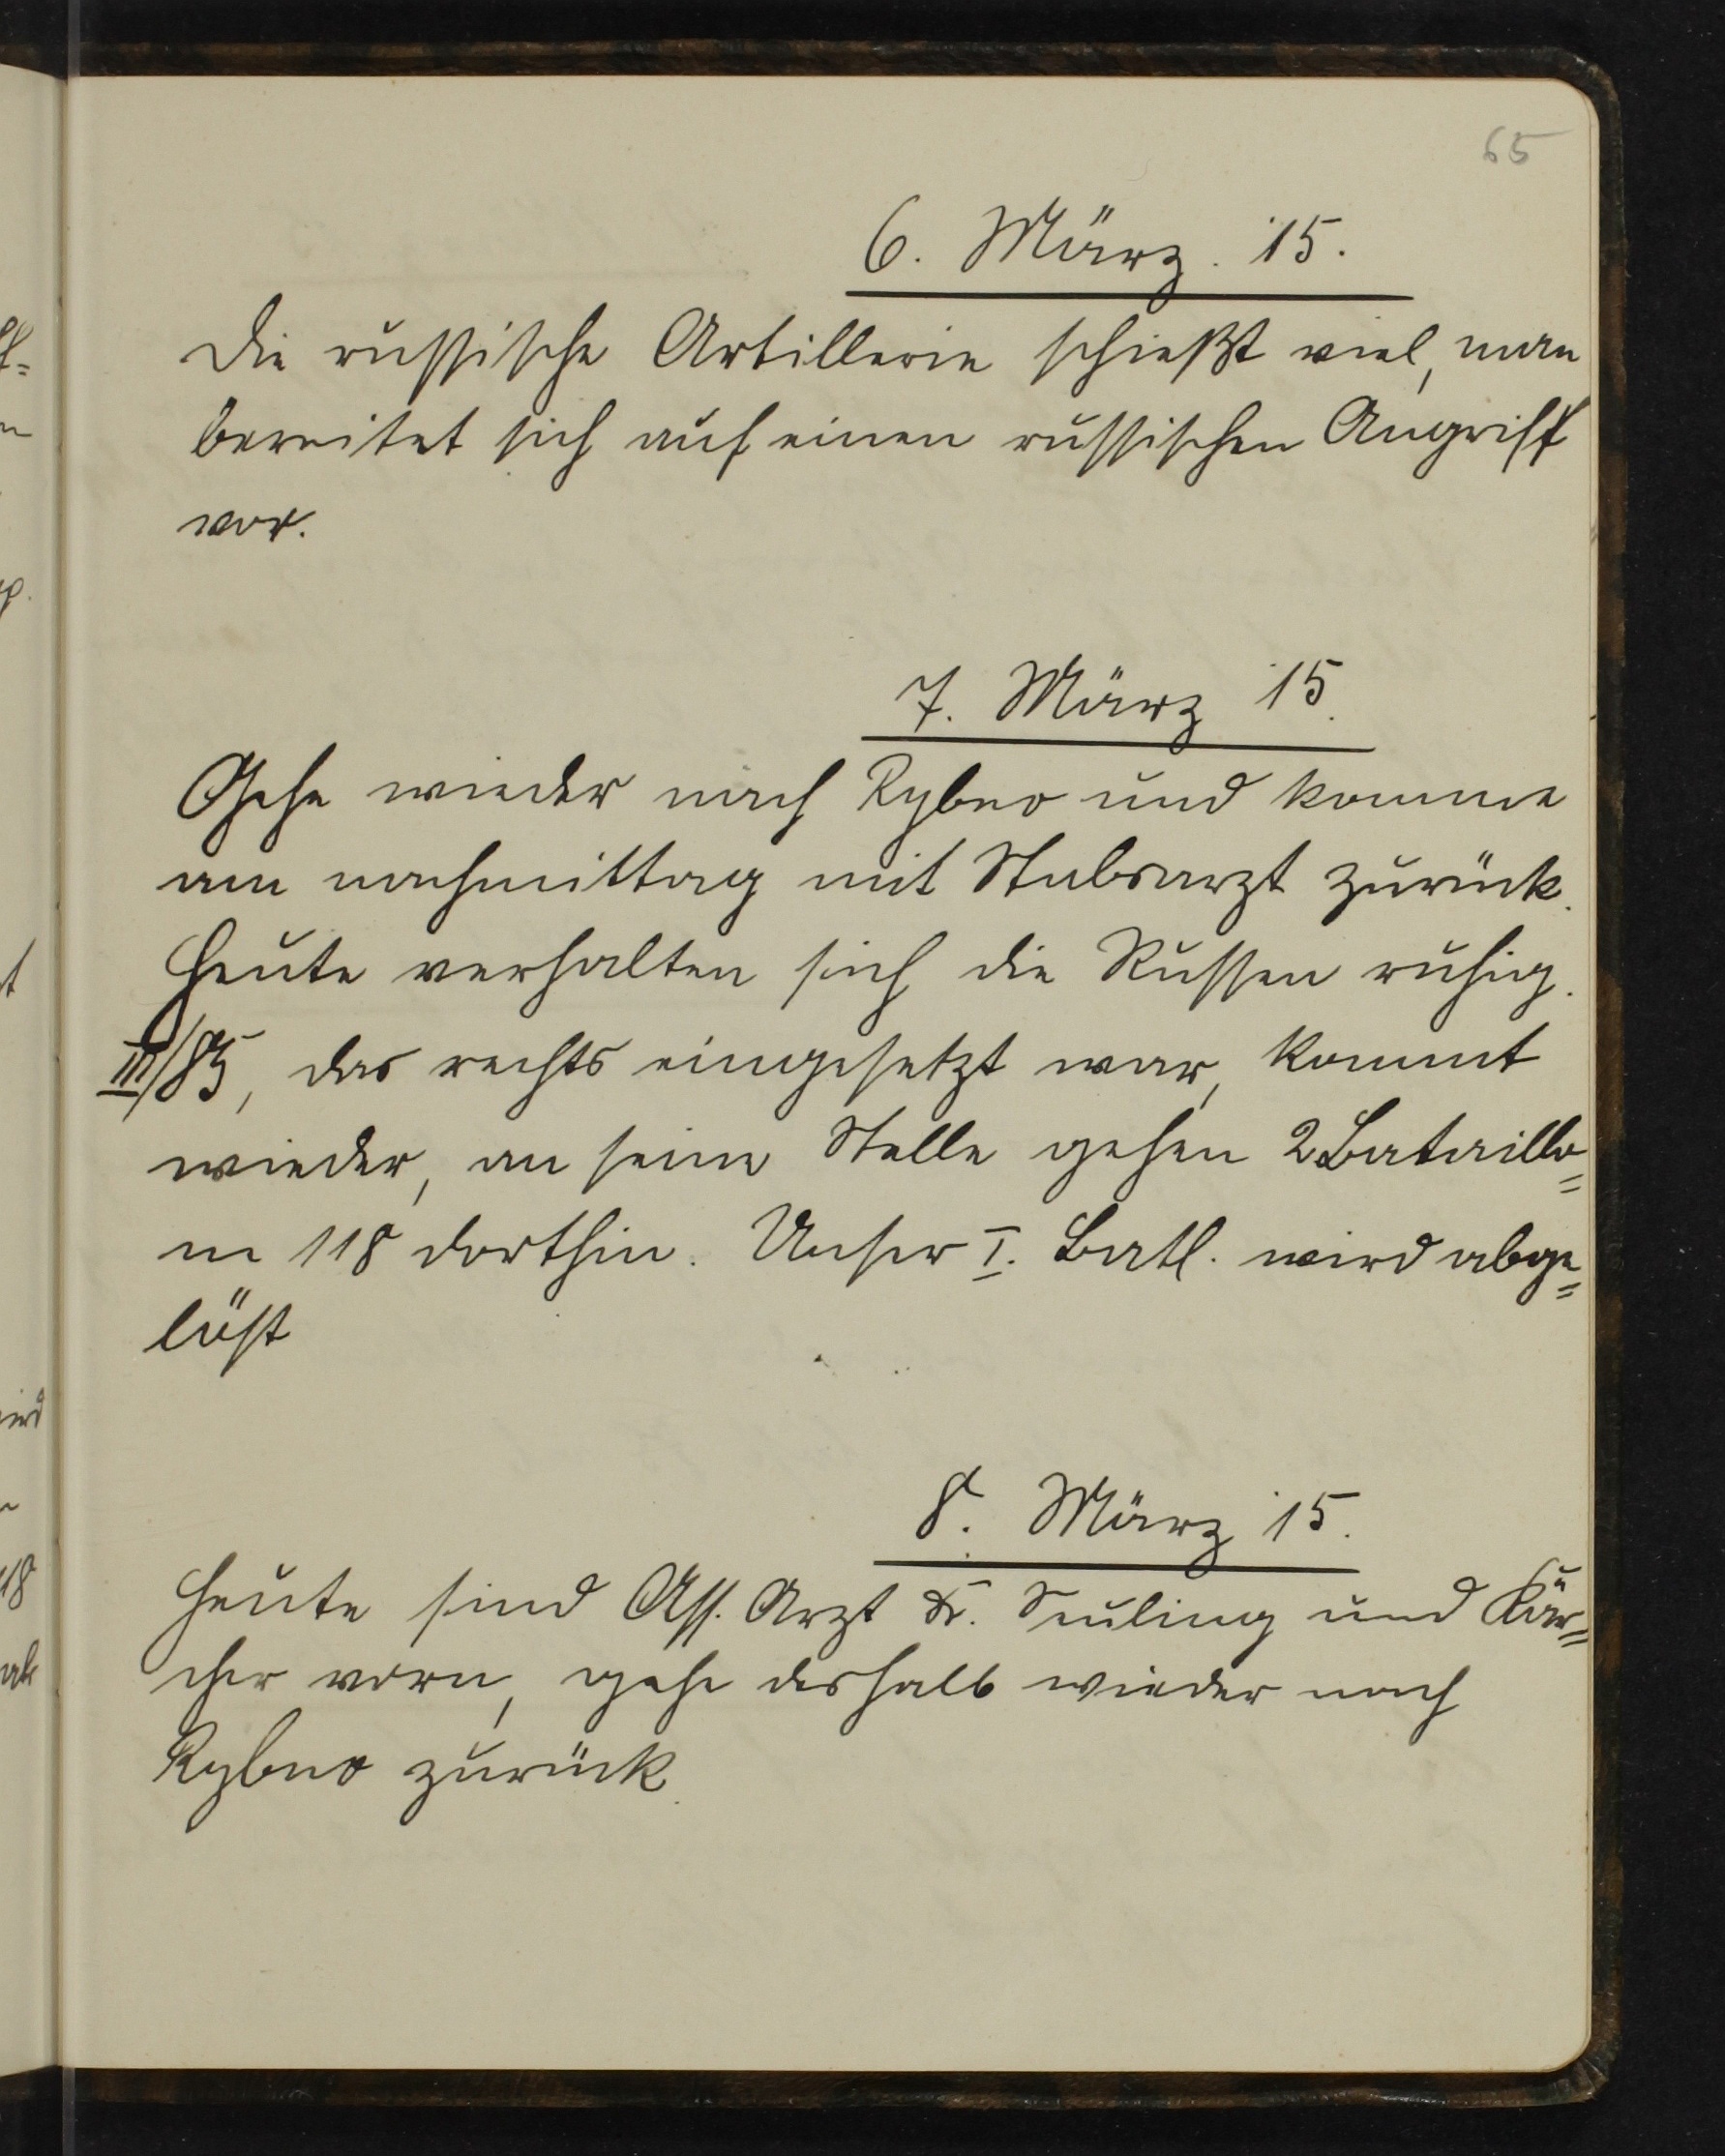 65
6. März. 15.
Die russische Artillerie schießt viel, man
bereitet sich auf einen russischen Angriff
vor.
7. März 15.
Gehe wieder nach Rybno und komme
am nachmittag mit Stabsarzt zurück.
Heute verhalten sich die Russen ruhig.
III/85, das rechts eingesetzt war, kommt
wieder, an seine Stelle gehen 2 Bataillo=
ne 118 dorthin. Unser I. Batl. wird abge=
löst
8. März 15.
Heute sind Ass. Arzt Dr. Seuling und Kär=
cher vorn, gehe deshalb wieder nach
Rybno zurück.